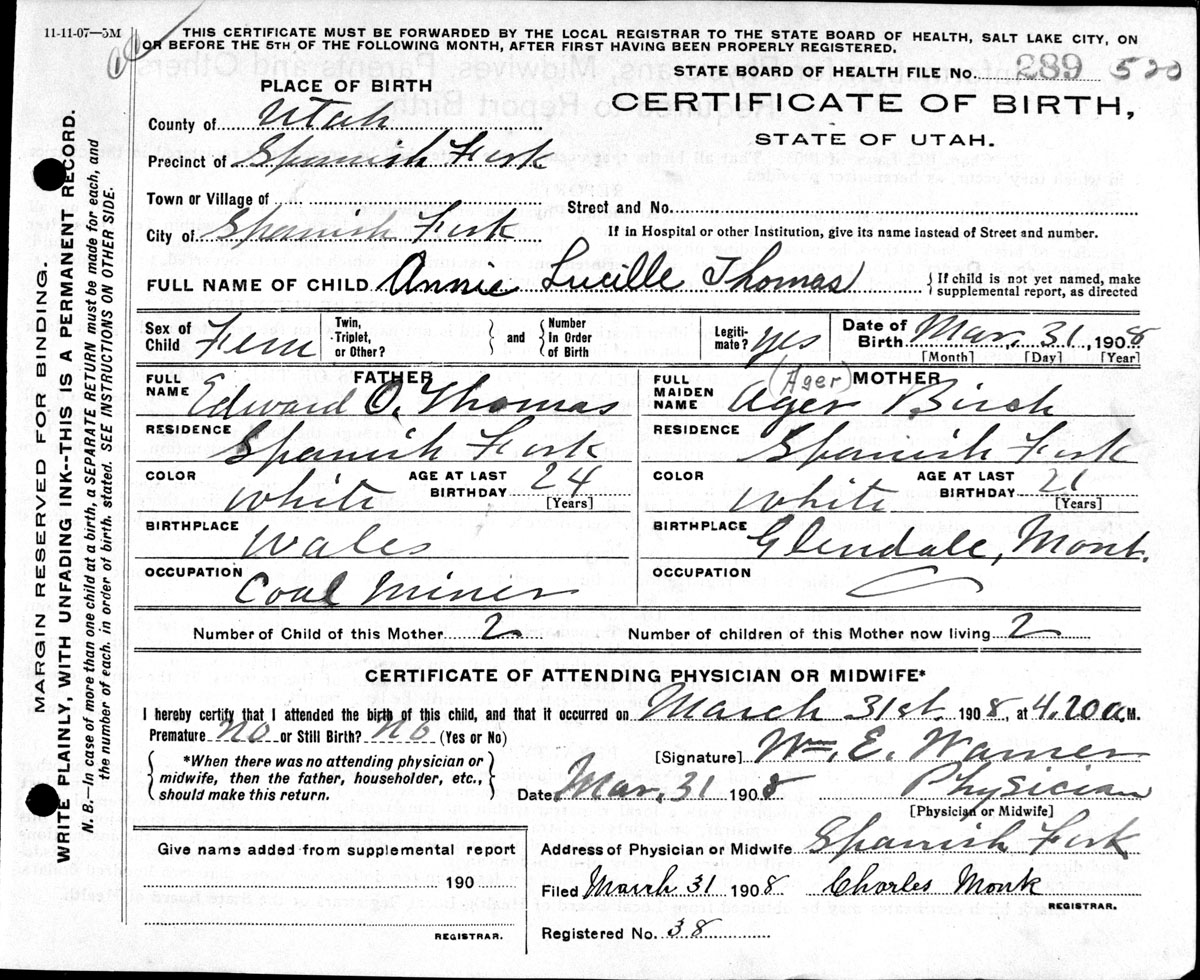 11-11-07—5M
THIS CERTIFICATE MUST BE FORWARDED BY THE LOCAL REGISTRAR TO THE STATE BOARD OF HEALTH, SALT LAKE CITY, ON
OR BEFORE THE 5TH OF THE FOLLOWING MONTH, AFTER FIRST HAVING BEEN PROPERLY REGISTERED.
STATE BOARD OF HEALTH FILE No. 289 520
PLACE OF BIRTH
CERTIFICATE OF BIRTH,
STATE OF UTAH.
County of Utah
Precinct of Spanish Fork
Town or Village of
Street and No.
City of Spanish Fork
If in Hospital or other Institution, give its name instead of Street and number.
FULL NAME OF CHILD Annie Lucille Thomas
{If child is not yet named, make
supplemental report, as directed
Sex of Child Fem
Twin, Triplet, or Other?
and
Number In Order of Birth
Legiti-mate? yes
Date of Birth Mar. 31, 1908
[Month] [Day] [Year]
FATHER
FULL NAME Edward O. Thomas
RESIDENCE
Spanish Fork
COLOR White AGE AT LAST BIRTHDAY 24
[Years]
BIRTHPLACE
Wales
OCCUPATION
Coal Miner
MOTHER
(Ager)
FULL MAIDEN NAME Ager Birch
RESIDENCE
Spanish Fork
COLOR White AGE AT LAST BIRTHDAY 21
[Years]
BIRTHPLACE
Glendale, Mont.
OCCUPATION
Number of Child of this Mother 2 Number of children of this Mother now living 2
CERTIFICATE OF ATTENDING PHYSICIAN OR MIDWIFE*
I hereby certify that I attended the birth of this child, and that it occurred on March 31st. 1908, at 4.20 a M.
Premature No or Still Birth? No (Yes or No)
*When there was no attending physician or
midwife, then the father, householder, etc.,
should make this return.
[Signature] Wm. E. Warner
Date Mar. 31 1908 Physician
[Physician or Midwife]
Give name added from supplemental report
190
REGISTRAR.
Address of Physician or Midwife Spanish Fork
Filed March 31 1908 Charles Monk
REGISTRAR.
Registered No. 38
MARGIN RESERVED FOR BINDING.
WRITE PLAINLY, WITH UNFADING INK--THIS IS A PERMANENT RECORD.
N. B.—In case of more than one child at a birth, a SEPARATE RETURN must be made for each, and
the number of each, in order of birth, stated. SEE INSTRUCTIONS ON OTHER SIDE.